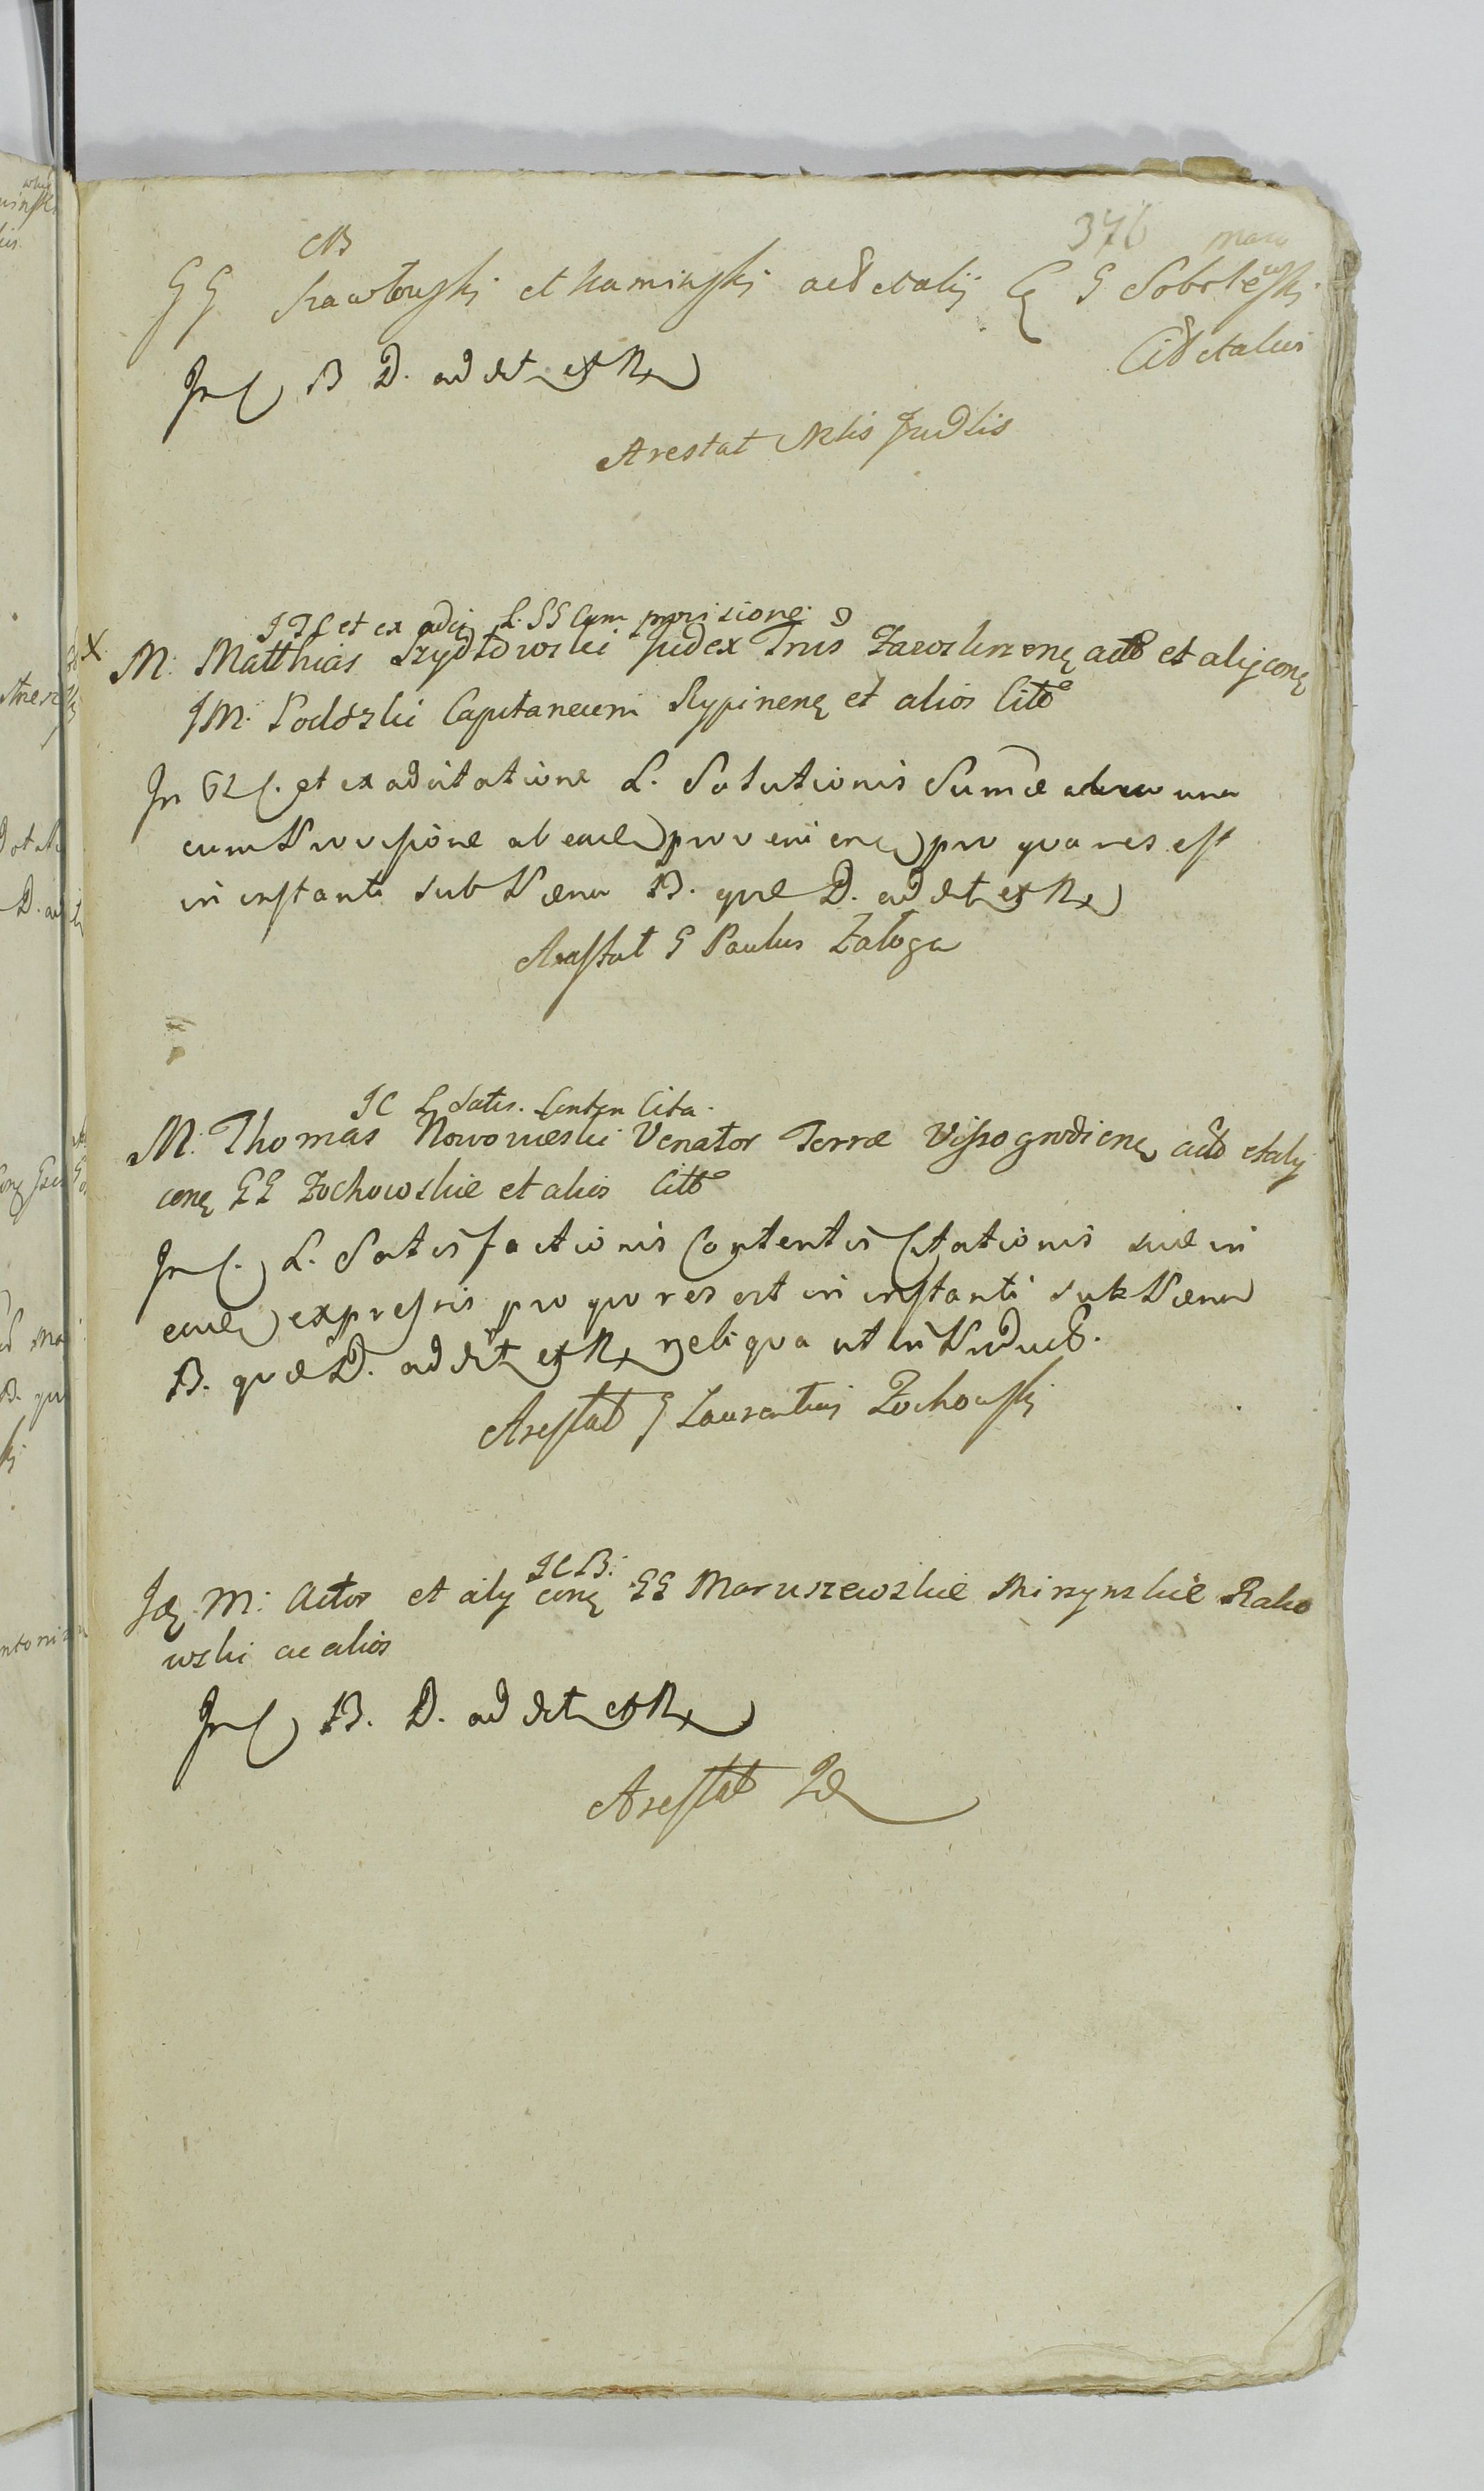 376
CB
GG Kawłowski et Kaminski act et alij Cę G Sobolewski
Cit et alios
In C B D. ad det et R
Arestat Nblis Judlis
JTC et ex adcj L. SS Cum provisione
X M. Matthias Szydłowski Judex Trris Zawskrzenę act et alij conę
JM. Podoski Capitaneum Rypinenę et alios Citt
In C. et ex adcitatione L. Solutionis Summæ una
cum Provisione ab eaue provenienę pro qua res est
in instanti sub Pæna B. quæ D. ad det et R
Arestat G Paulus Załoga
JC L Satis. Conten Cita.
M. Thomas Nowowieski Venator Terræ Vissogrodienę act et alij
conę GG Żochowskie et alios Citt
In C. L. Satisfactionis Contentis Citationis suæ in
eaue expressis pro quo res est in instanti sub Pæna
B. quæ D. ad det et R reliqua ut in Produć.
Arestat G Laurentius Żochowski
JC B.
Idę M. Actor et alij conę GG Maruszewskie Mirzynskie Rako
wski ac alios
In C B. D. ad det et R
Arestat Id